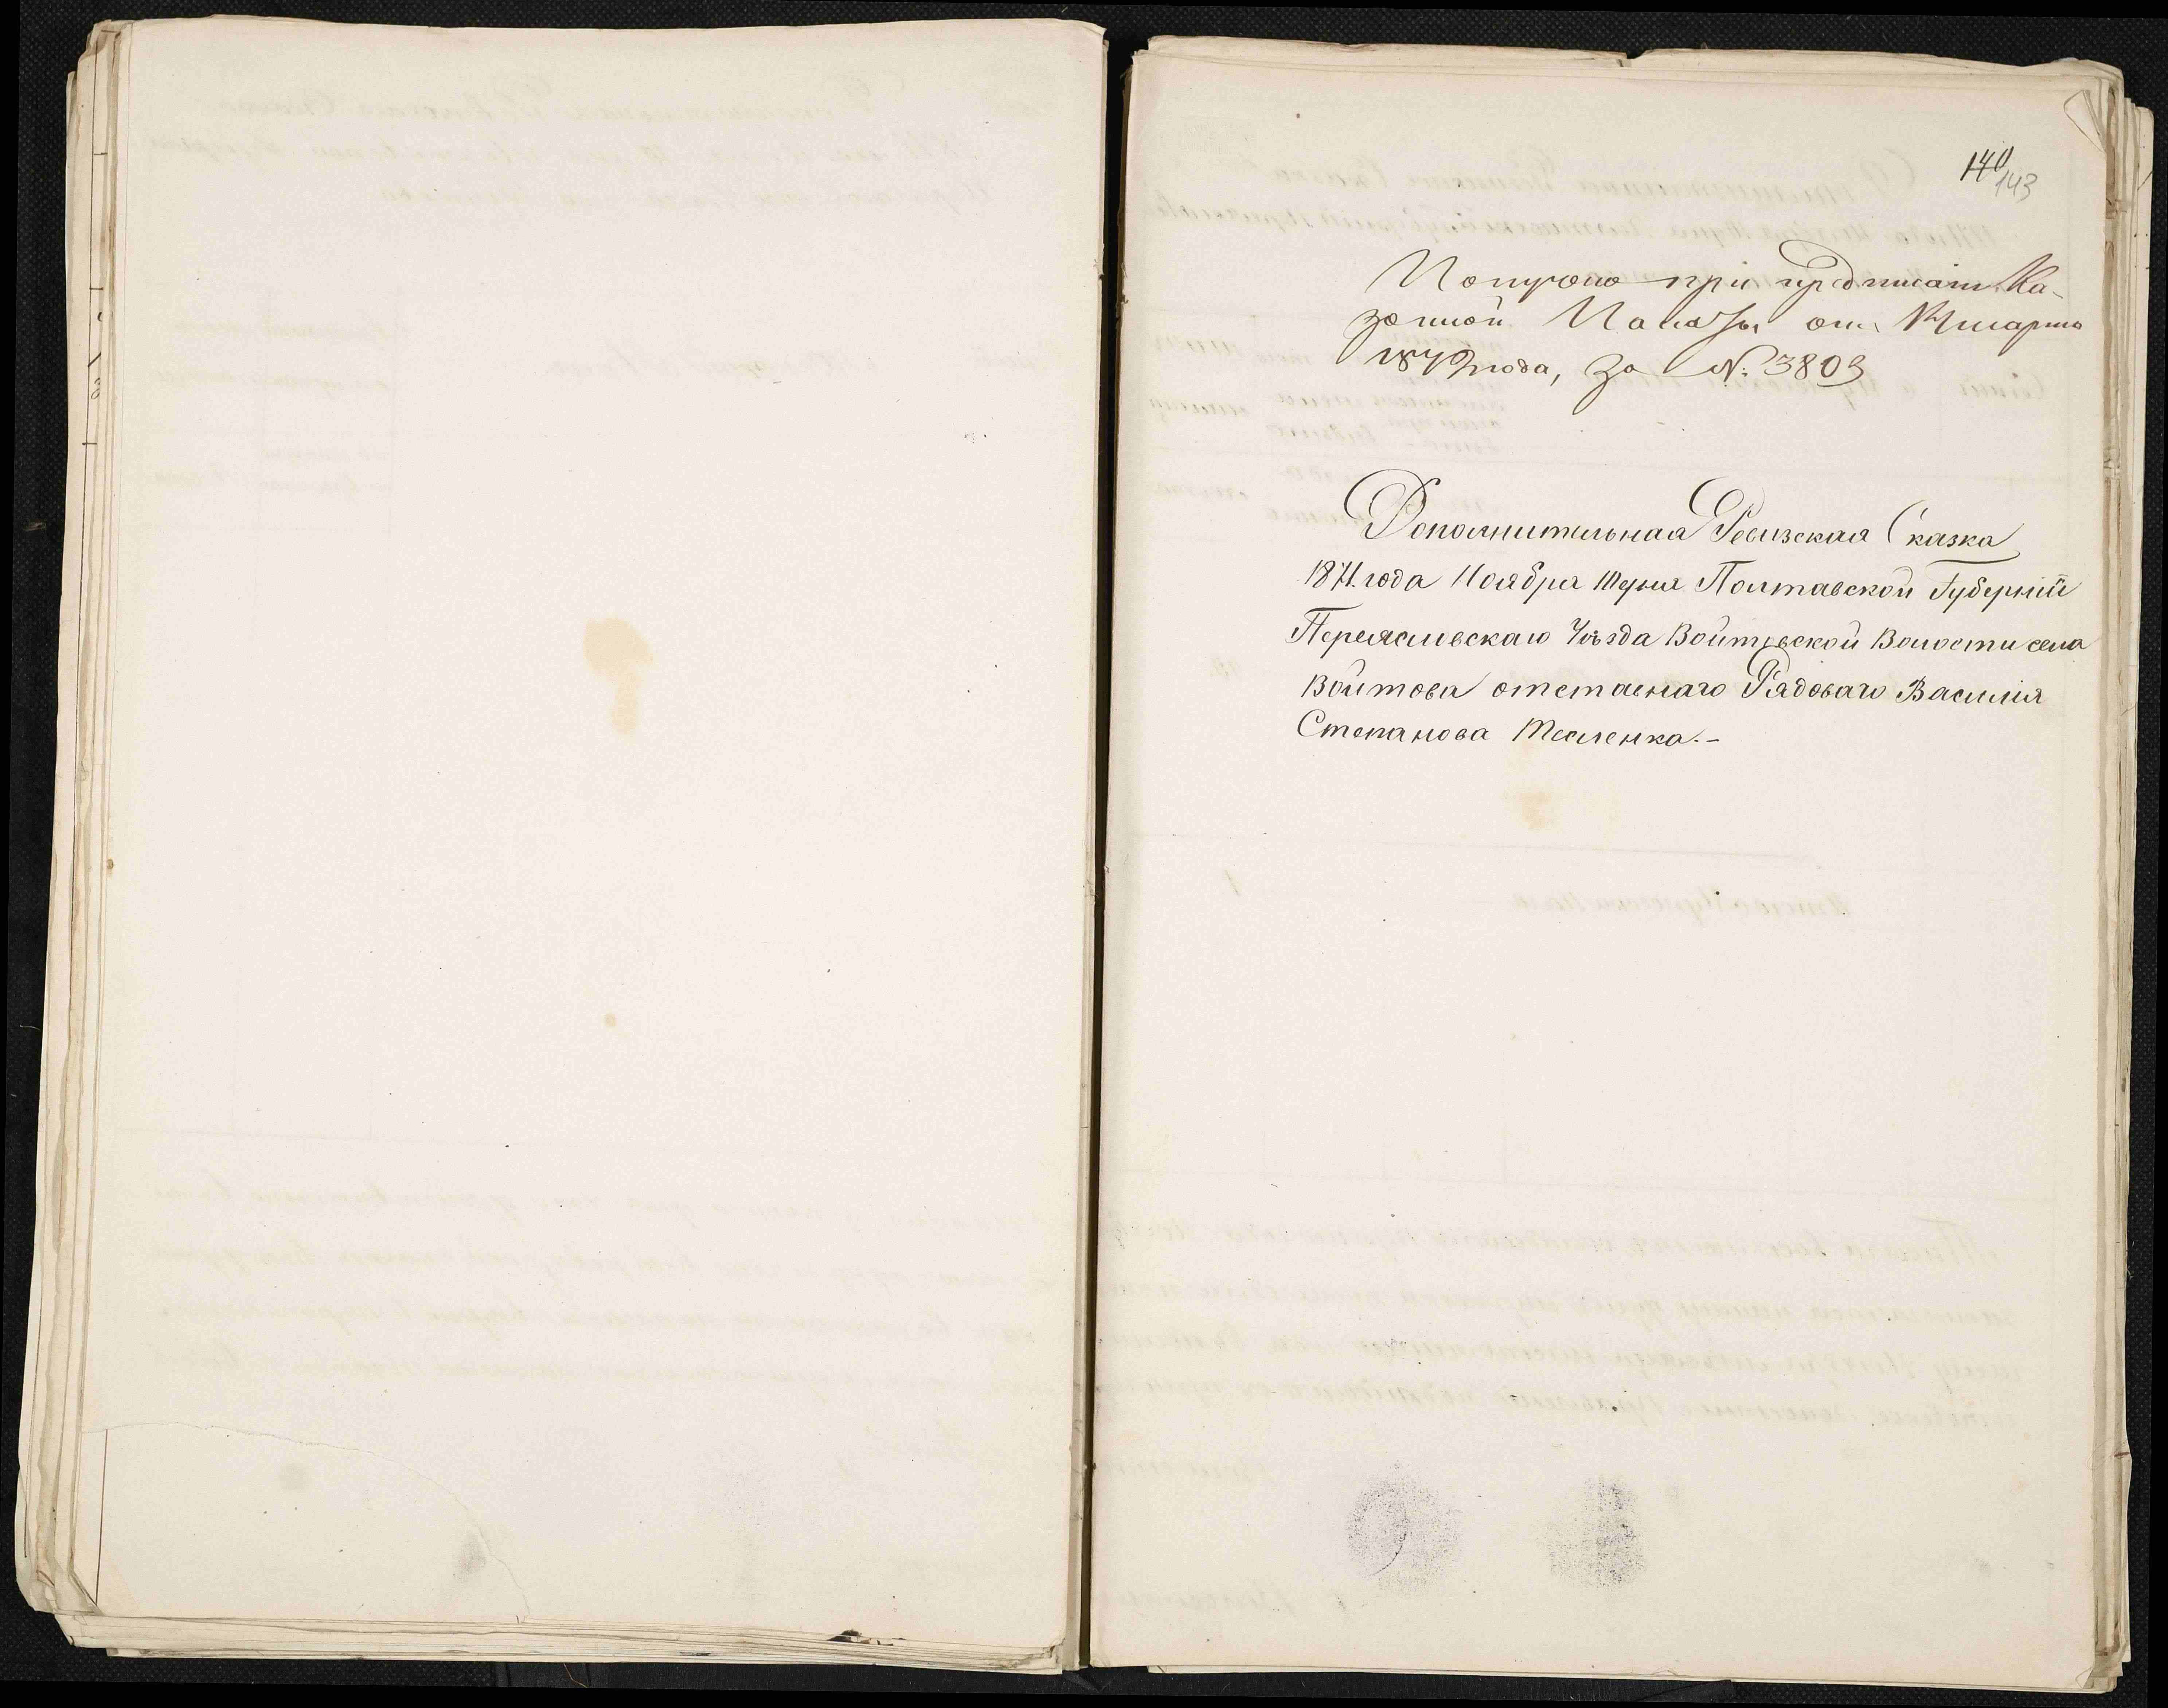 140
143
Получено при предписаніи Ка-
зенной Палаты отъ марта
1872 года, За №: 3803
Дополнительная Ревизская Сказка
1871 года Ноября 10 дня Полтавской Губерніи
Переяславского Уѣзда Войтовской Волости села
Войтова отставнаго Рядоваго Василія
Степанова Тесленка.-